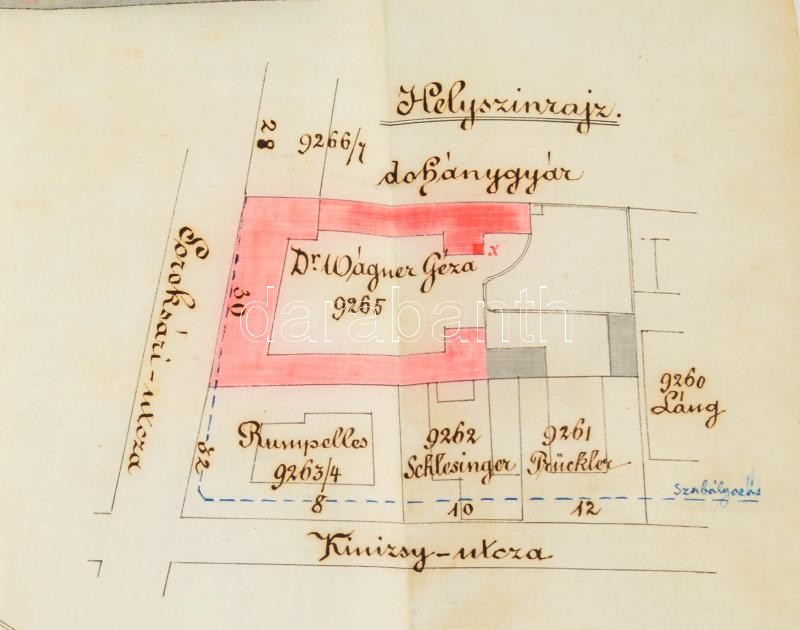 Helyszinrajz.
28
9266/7
dohánygyár
Soroksári-utcza
30
Dr. Wágner Géza
9265
x
darabanth
9260
Láng
32
Rumpelles
9263/4
8
9262
Schlesinger
10
9261
Prückler
12
Szabályozás
Kinizsy-utcza